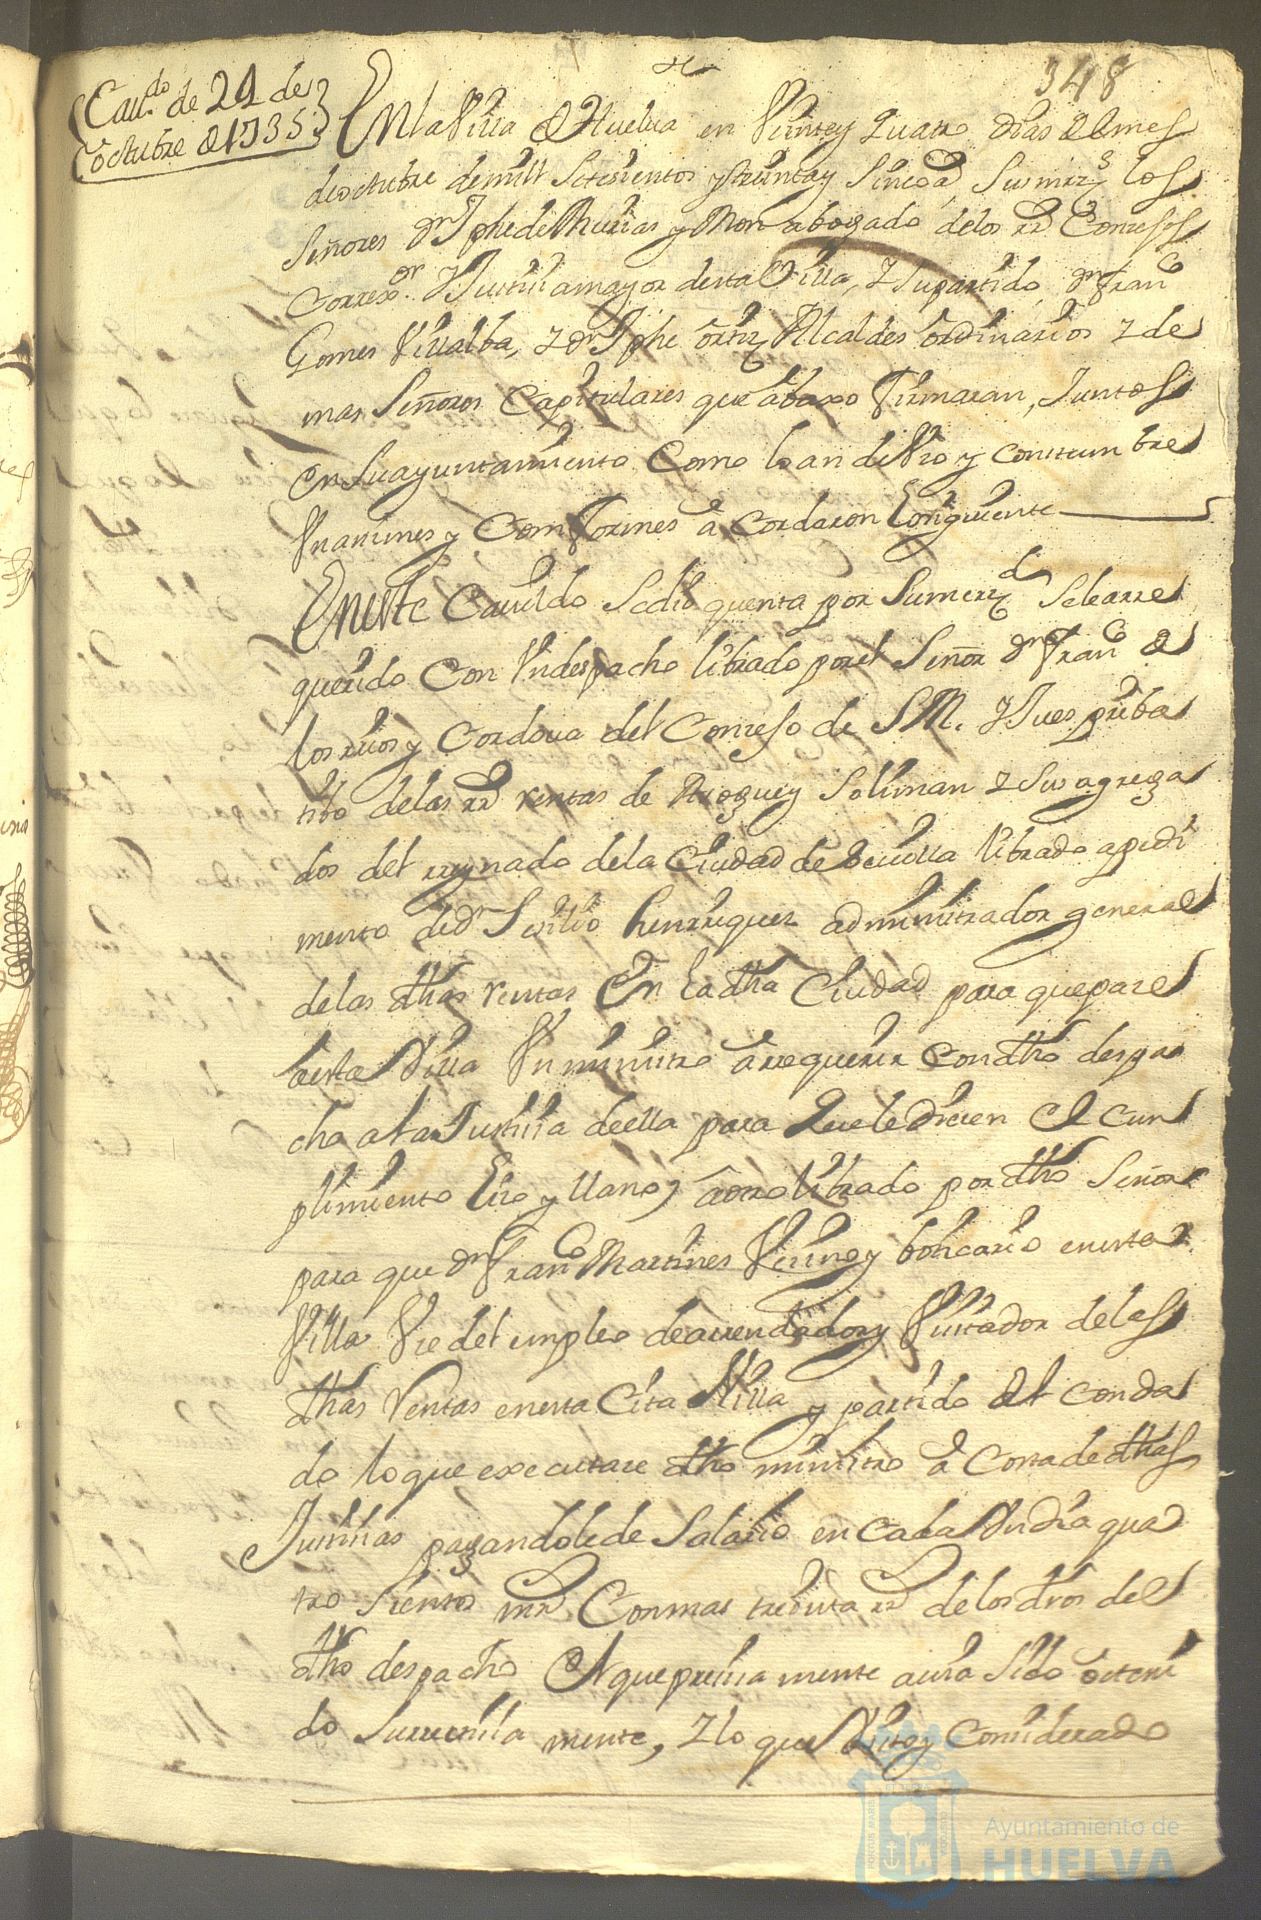 348
Cauildo de 24 de
octubre de 1735
En la Villa de Huelva en Veinte y quatro dias del mes
de octubre de mill setesientos y treinta y sinco a sus mrzs los
Señores Dn Jphe de Murias y Mon abogado de los rs Consejos
Correxor y Justisia mayor desta Villa, y su partido, Dn Franco
Gomes Villalba, y Dn Jphe Ortiz Alcaldes ordinarios y de
mas Señores Capitulares que abaxo firmaran, Juntos
en su ayuntamiento como lo an de Vso y costumbre
Vnanimes y Comformes acordaron lo siguiente
En este Cauildo se dio quenta por su merzd se le a rre
querido con Vn despacho librado por el Señor Dn Franco de
los rios y Cordova del Consejo de S M. y Jues priba
tibo de las rs rentas de Azogue y Soliman y sus agrega
dos del rreynado de la Ciudad de Sevilla librado a pedi
mento de Dn Silbio henrriquez administrador general
de las dhas rentas En la dha Ciudad para que pase
a esta Villa Vn ministro a rrequerir con dho despa
cho a la Justisia de ella para que le diesen el cun
plimiento liso y llano y otro librado por dho Señor
para que Dn Franco Martines Vesino y boticario en esta
Villa Vse del empleo de arrendador y Visitador de las
dhas rentas en esta Cita Villa y partido del conda
do lo que executase dho ministro a costa de dhas
Justisias pagandole de salario en cada Vn dia qua
tro sientos mrs con mas treinta rs de los dros del
dho despacho El que presisamente auia sido obteni
do surretisia mente, y lo que Visto y considerado
Ayuntamiento de
HUELVA